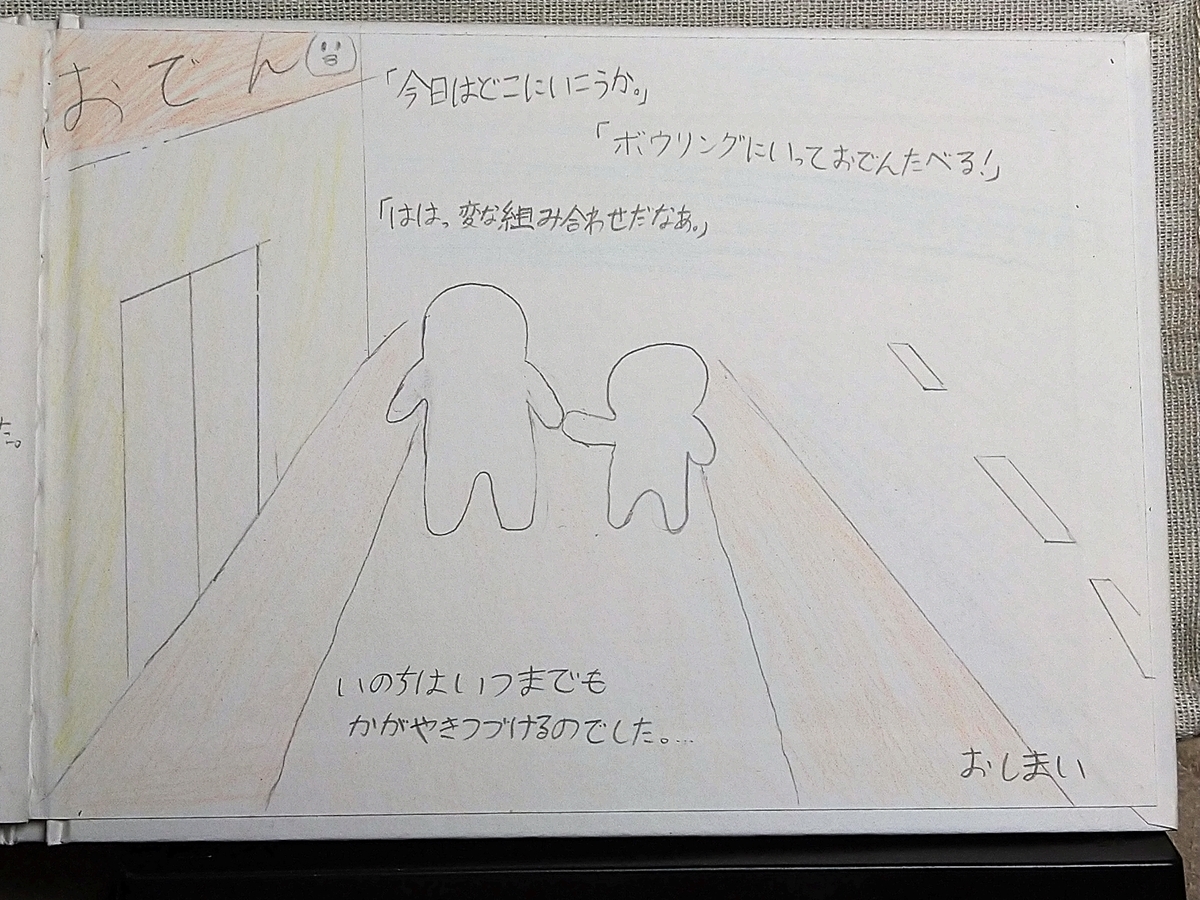 おでん
「今日はどこにいこうか。」
「ボウリングにいっておでんたべる!」
「ははっ変な組み合わせだなあ。」
た。
いのちはいつまでも
かがやきつづけるのでした。…
おしまい